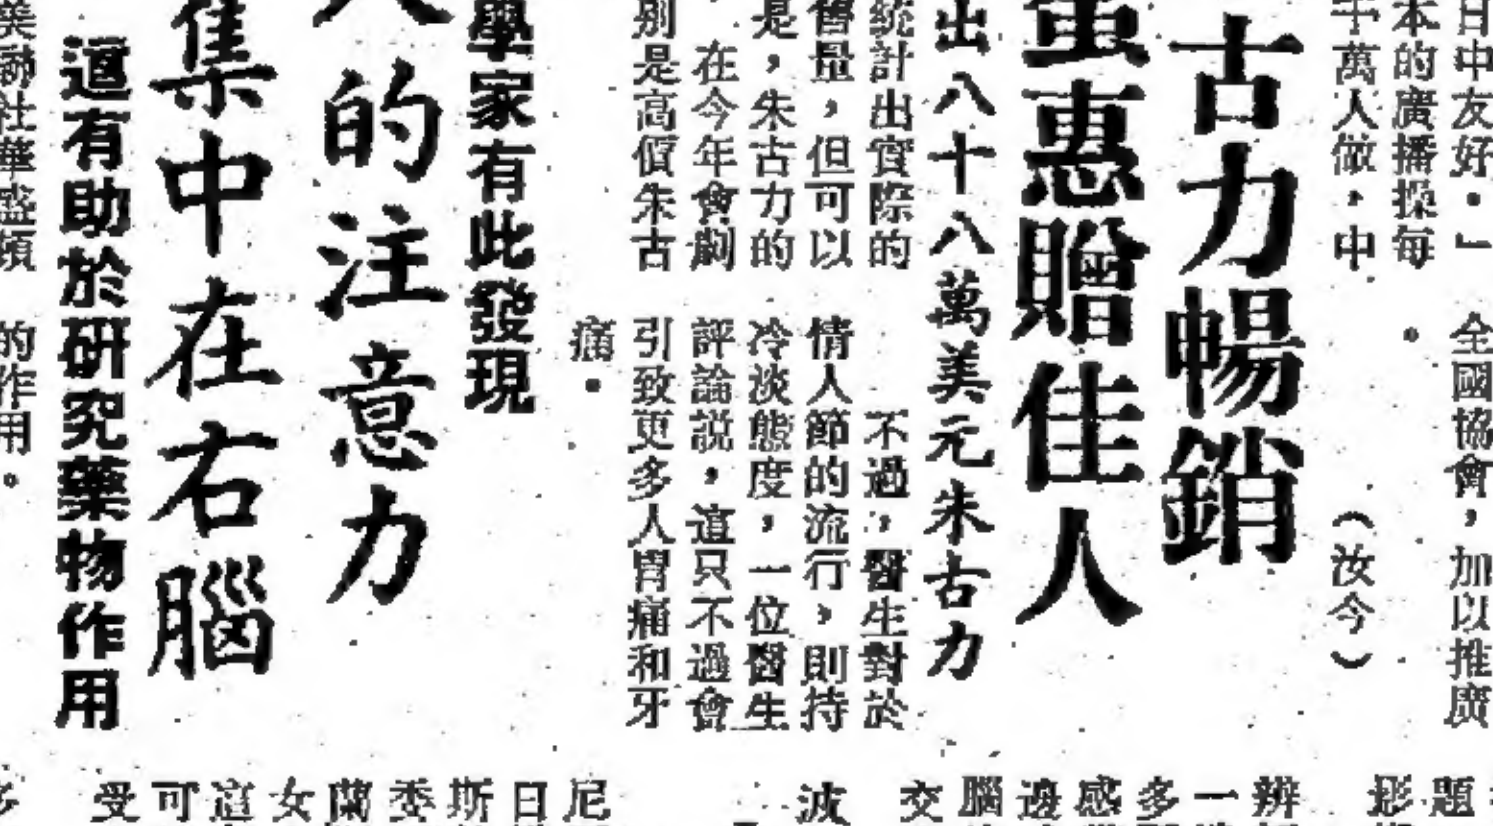 日中友好。」
本的廣播操每
千萬人做，中
。
全國協會，加以推廣
（汝今）
古力暢銷
惠贈佳人
出八十八萬美元朱古力
統計出實際的
舊量，但可以
是，朱古力的
在今年會劇
別是高價朱古
不過，醫生對於
情人節的流行，則持
冷淡態度，一位醫生
評論説，這只不過會
引致更多人胃痛和牙
痛。
學家有此發現
人的注意力
集中在右腦
這有助於研究藥物作用
美聯社華盛頓
的作用。
題
影
辨
一
多
感
邊
腦
交
波
尼
日
斯
委
蘭
女
這
可
受